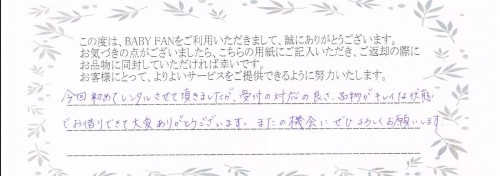 この度は、BABY FANをご利用いただきまして、誠にありがとうございます。
お気づきの点がございましたら、こちらの用紙にご記入いただき、ご返却の際に
お品物に同封していただければ幸いです。
お客様にとって、よりよいサービスをご提供できるように努力いたします。
今回初めてレンタルさせて頂きましたが、受付の対応の良さ、品物がキレイな状態
でお借りできて大変ありがとうございます。またの機会にぜひよろしくお願いします